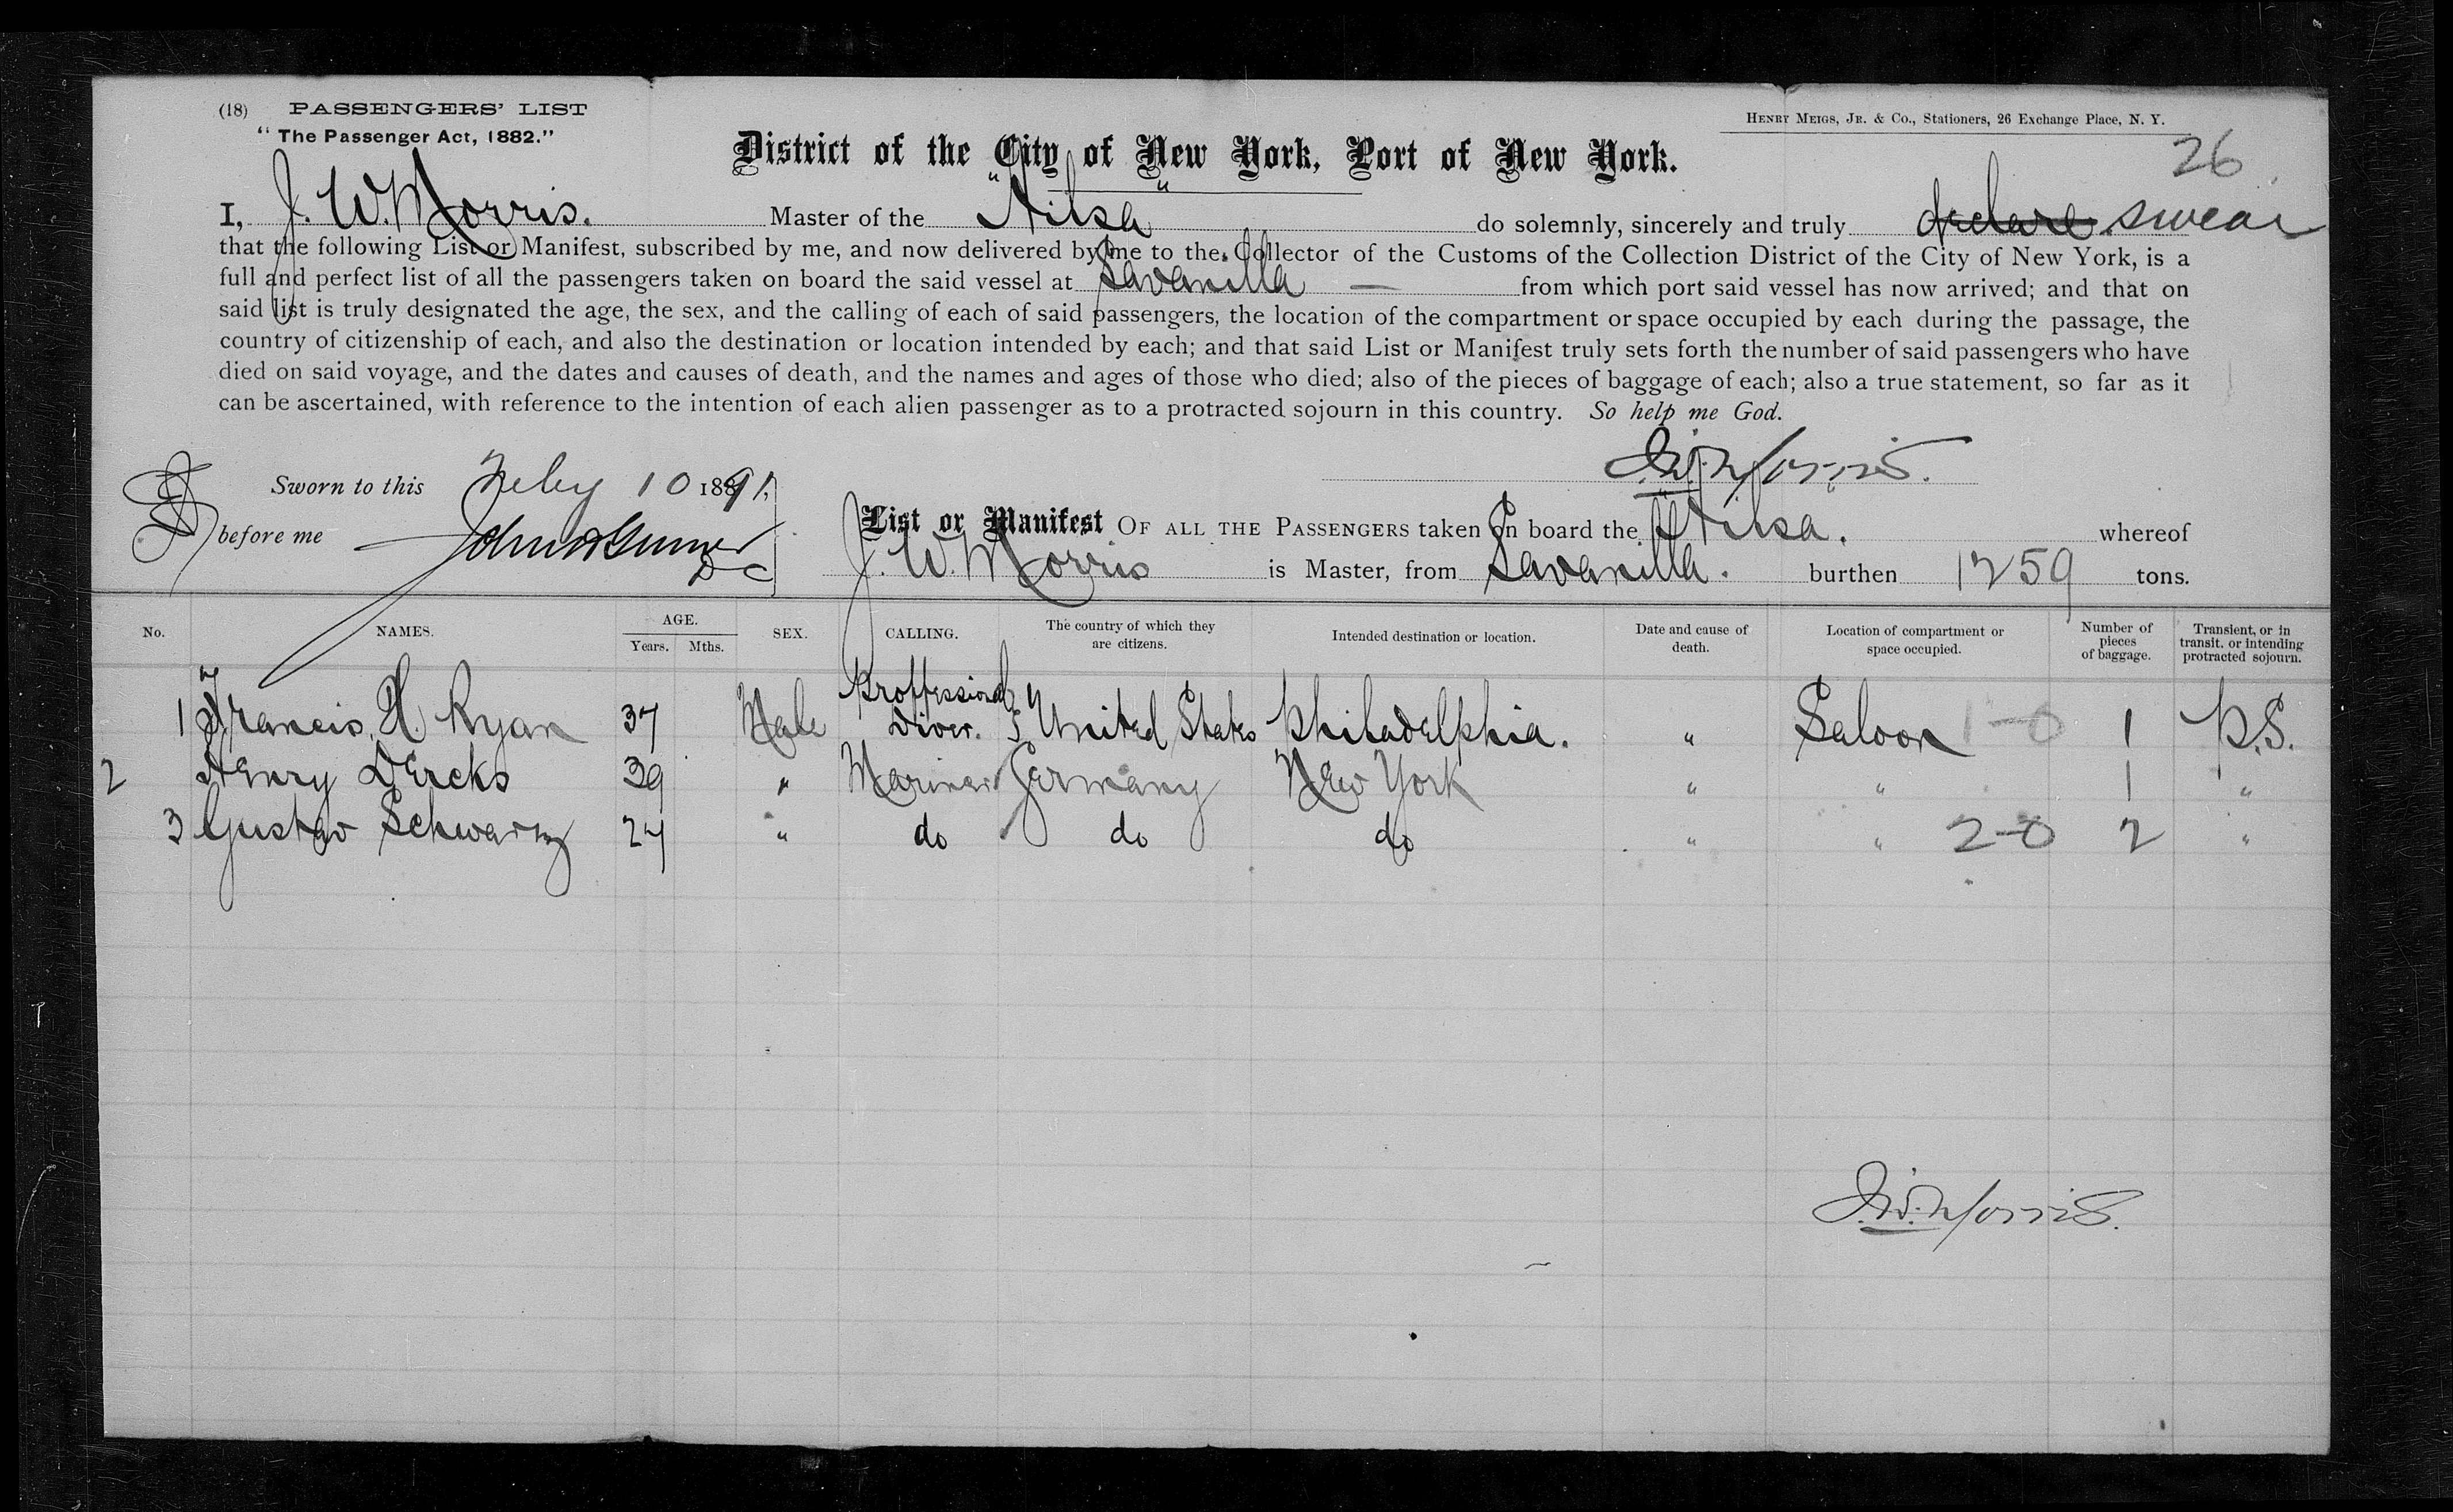 (18) PASSENGERS' LIST
"The Passenger Act, 1882."
HENRY MEIGS, JR. & Co., Stationers, 26 Exchange Place, N. Y.
District of the City of New York, Port of New York.
26
I, J. W. Morris. Master of the "Ailsa" do solemnly, sincerely and truly declare swear
that the following List or Manifest, subscribed by me, and now delivered by me to the Collector of the Customs of the Collection District of the City of New York, is a
full and perfect list of all the passengers taken on board the said vessel at Savanilla — from which port said vessel has now arrived; and that on
said list is truly designated the age, the sex, and the calling of each of said passengers, the location of the compartment or space occupied by each during the passage, the
country of citizenship of each, and also the destination or location intended by each; and that said List or Manifest truly sets forth the number of said passengers who have
died on said voyage, and the dates and causes of death, and the names and ages of those who died; also of the pieces of baggage of each; also a true statement, so far as it
can be ascertained, with reference to the intention of each alien passenger as to a protracted sojourn in this country. So help me God.
J. W. Morris.
Sworn to this Feby 10 1891,
before me
D C
List or Manifest OF ALL THE PASSENGERS taken on board the "Ailsa". whereof
J. W. Morris is Master, from Savanilla. burthen 1259 tons.
No. NAMES. AGE. Years. Mths. SEX. CALLING. The country of which they are citizens. Intended destination or location. Date and cause of death. Location of compartment or space occupied. Number of pieces of baggage. Transient, or in transit, or intending protracted sojourn.
1 Francis. H. Ryan 37 Male Proffessional Diver. United States Philadelphia. " Saloon 1-0 1 P.S.
2 Henry Dercks 39 " Mariner Germany New York " " 1 "
3 Gustav Schwarz 24 " do do do " " 2-0 2 "
J. W. Morris.